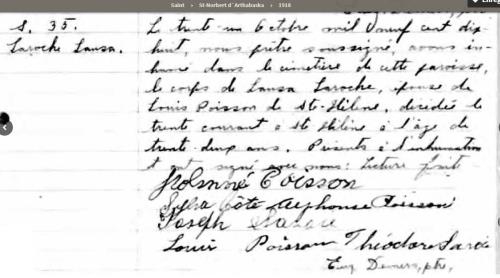 Saint › St-Norbert d´Arthabaska › 1918
S. 35.
Laroche Lausa.
Le trente-un Octobre mil neuf cent dix-
huit, nous prêtre soussigné, avons in-
humé dans le cimetière de cette paroisse,
le corps de Lausa Laroche, épouse de
Louis Poisson de Ste-Hélène, décédée le
trente courant à Ste Hélène à l'âge de
trente-deux ans. Présents à l'inhumation
et ont signé avec nous: Lecture faite
Poisson
Côté Alphonse Poisson
Joseph
Louis Poisson Théodore
Eug. Demers, ptre,